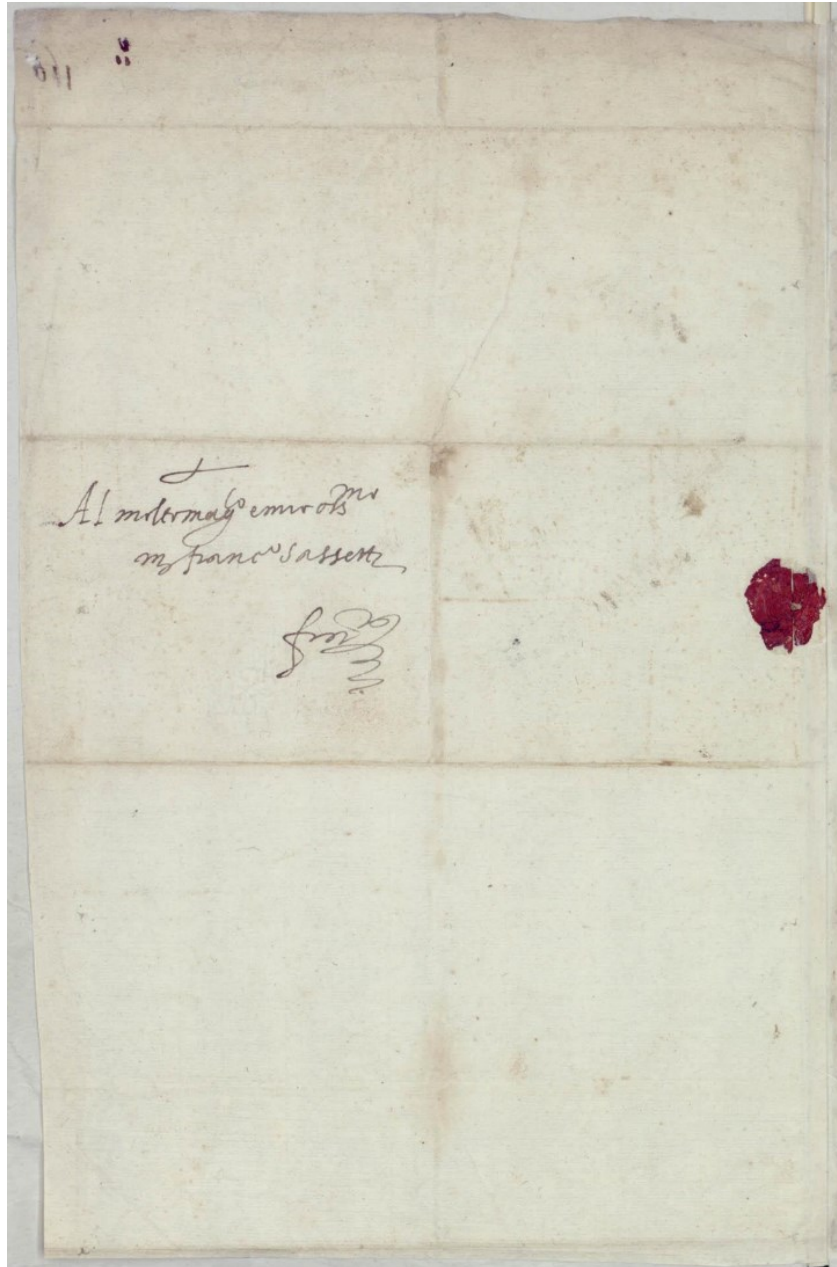 Al molto mag.co e mio oss.mo
m franc.o Sassetti